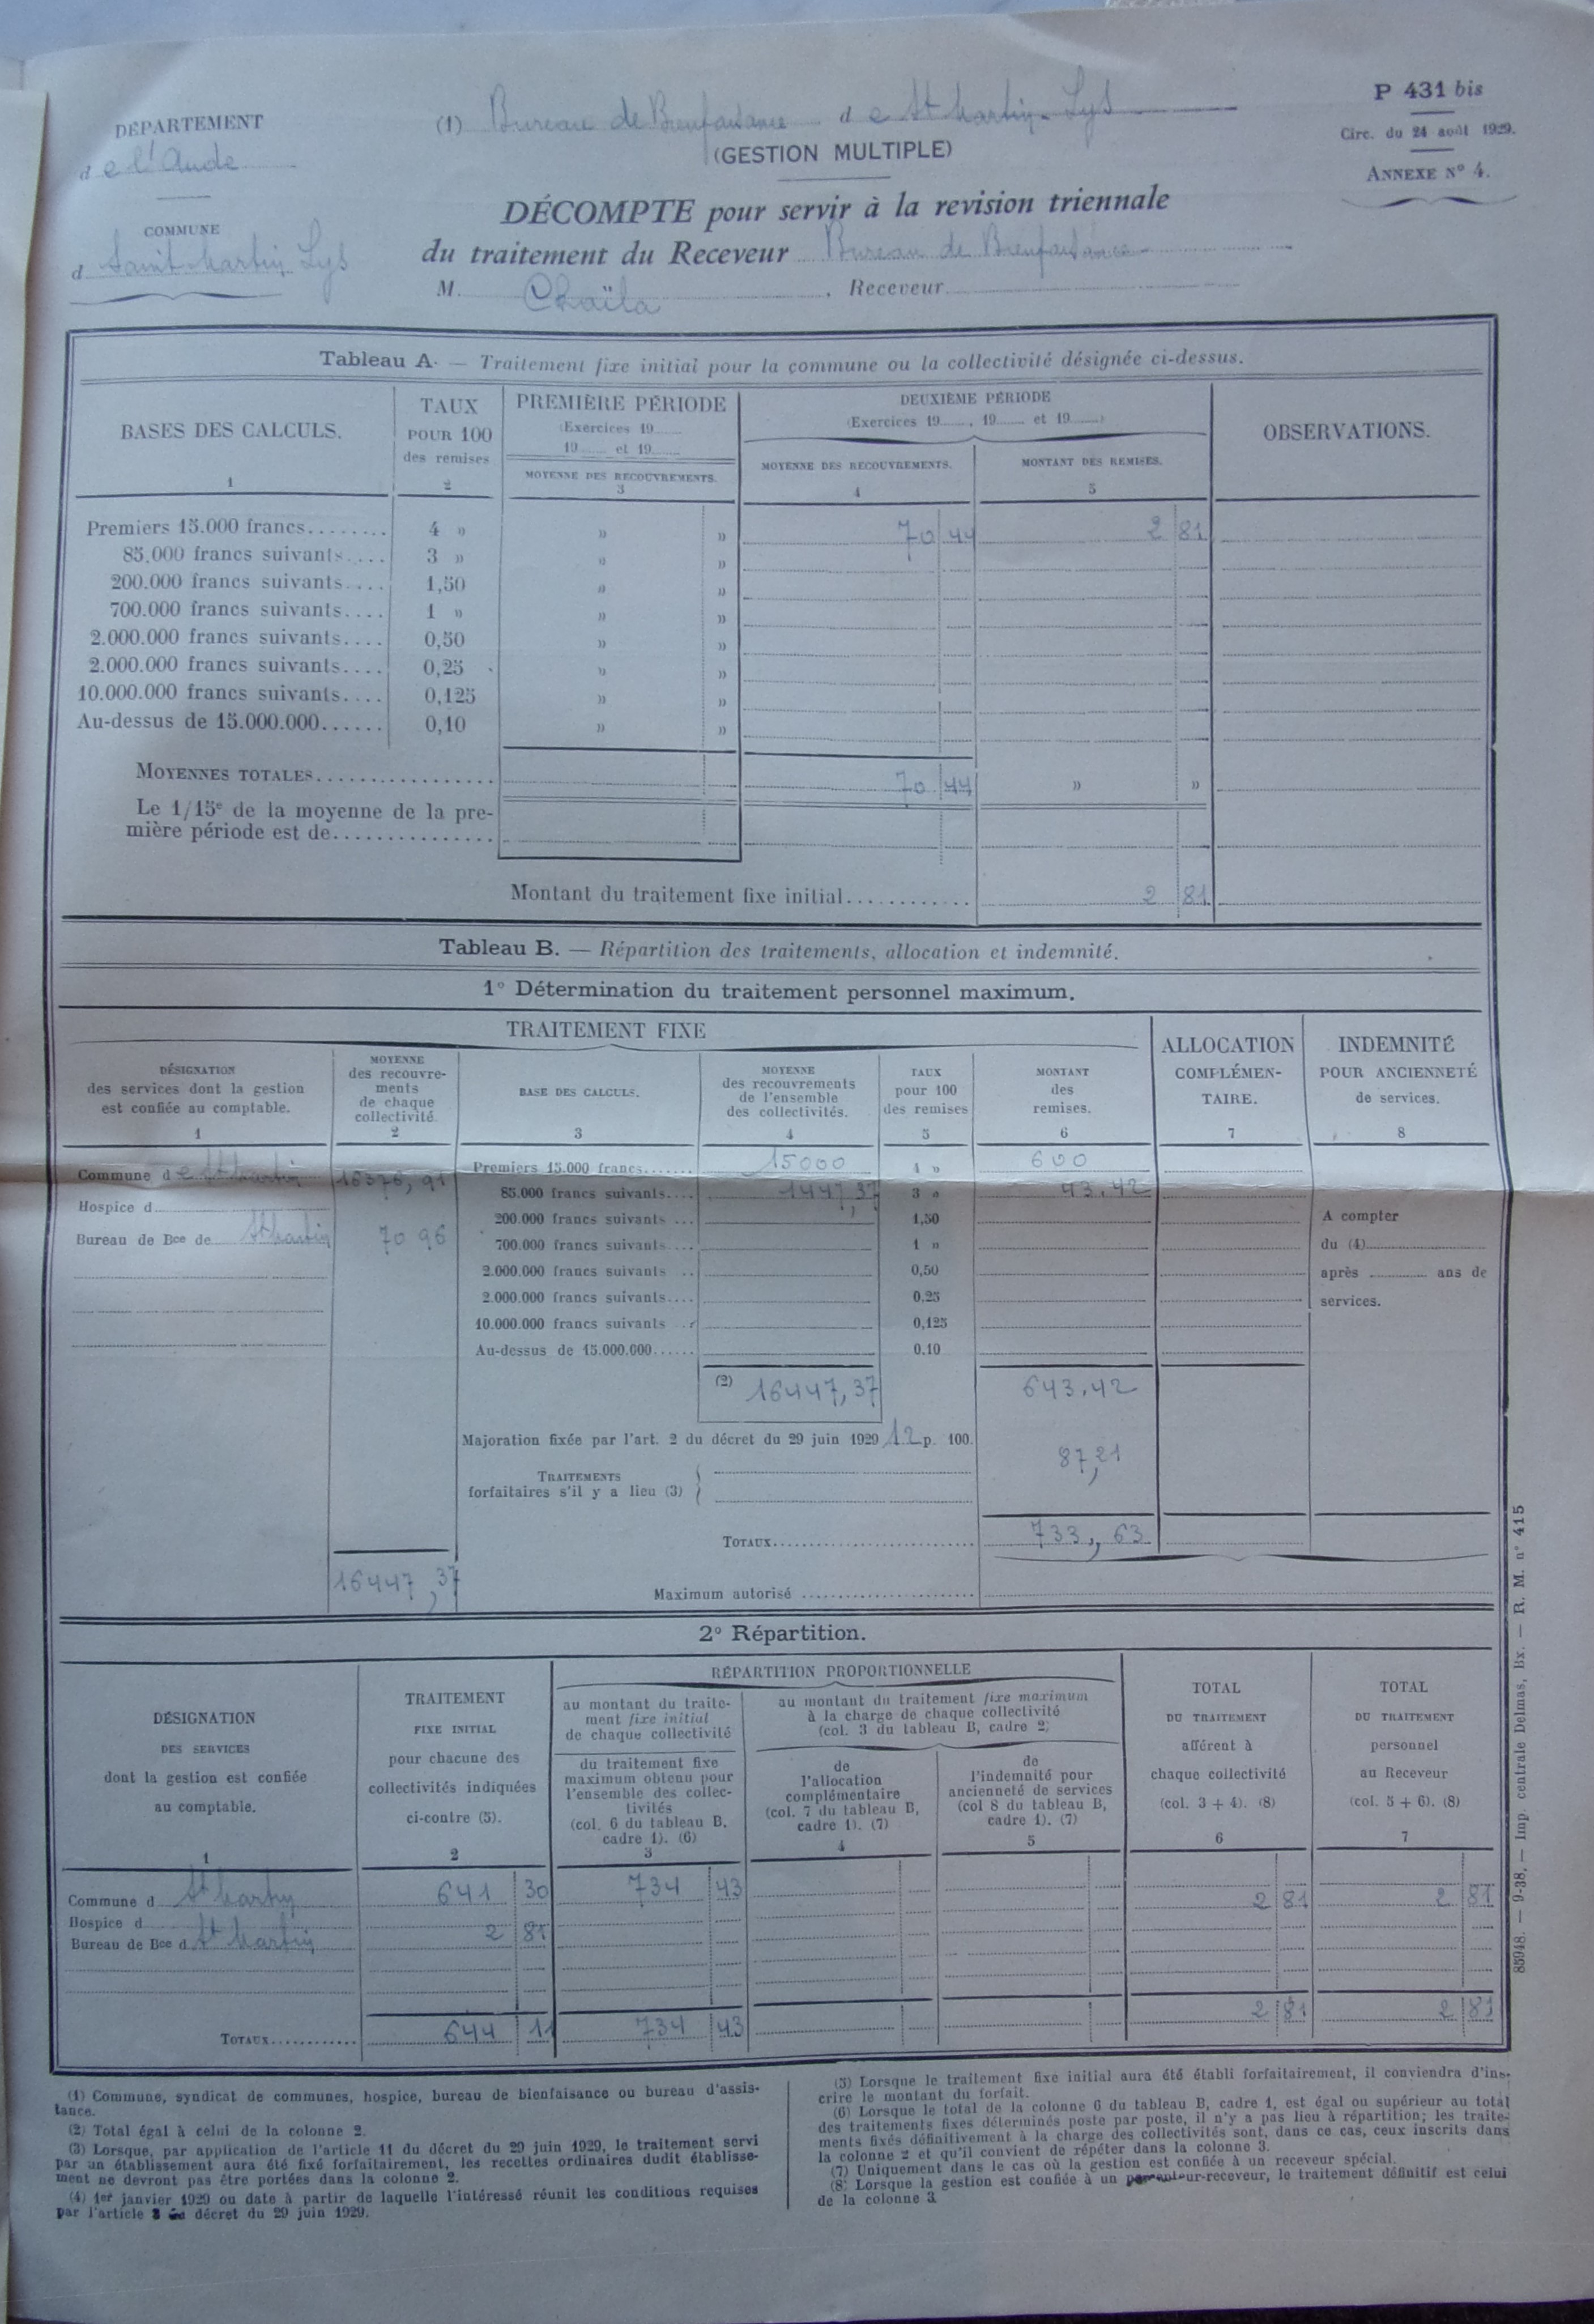 P 431 bis
Circ. du 24 août 1929.
ANNEXE N° 4.
DÉPARTEMENT
de l'Aude
COMMUNE
d Saint Martin Lys
(1) Bureau de Bienfaisance de St Martin-Lys
(GESTION MULTIPLE)
DÉCOMPTE pour servir à la revision triennale
du traitement du Receveur Bureau de Bienfaisance
M. Chaïla, Receveur
Tableau A. — Traitement fixe initial pour la commune ou la collectivité désignée ci-dessus.
BASES DES CALCULS.
1
TAUX
POUR 100
des remises
2
PREMIÈRE PÉRIODE
(Exercices 19......
19...... et 19......
MOYENNE DES RECOUVREMENTS.
3
DEUXIÈME PÉRIODE
(Exercices 19......, 19...... et 19......)
MOYENNE DES RECOUVREMENTS.
4
MONTANT DES REMISES.
5
OBSERVATIONS.
Premiers 15.000 francs........ 4 » » » 70 44 2 81
85.000 francs suivants.... 3 » » »
200.000 francs suivants.... 1,50 » »
700.000 francs suivants.... 1 » » »
2.000.000 francs suivants.... 0,50 » »
2.000.000 francs suivants.... 0,25 » »
10.000.000 francs suivants.... 0,125 » »
Au-dessus de 15.000.000...... 0,10 » »
MOYENNES TOTALES................. 70 44 » »
Le 1/15e de la moyenne de la pre-
mière période est de...............
Montant du traitement fixe initial............ 2 81
Tableau B. — Répartition des traitements, allocation et indemnité.
1° Détermination du traitement personnel maximum.
TRAITEMENT FIXE
DÉSIGNATION
des services dont la gestion
est confiée au comptable.
1
MOYENNE
des recouvre-
ments
de chaque
collectivité
2
BASE DES CALCULS.
3
MOYENNE
des recouvrements
de l'ensemble
des collectivités.
4
TAUX
pour 100
des remises
5
MONTANT
des
remises.
6
ALLOCATION
COMPLÉMEN-
TAIRE.
7
INDEMNITÉ
POUR ANCIENNETÉ
de services.
8
Commune de St Martin 16376,91
Hospice d
Bureau de Bce de St Martin 70 96
Premiers 15.000 francs....... 15000 4 » 600
85.000 francs suivants.... 1447,37 3 » 43.42
200.000 francs suivants ... 1,50
700.000 francs suivants.... 1 »
2.000.000 francs suivants .. 0,50
2.000.000 francs suivants.... 0.25
10.000.000 francs suivants .. 0,125
Au-dessus de 15.000.000...... 0.10
A compter
du (4)
après ......... ans de
services.
(2) 16447,37 643.42
Majoration fixée par l'art. 2 du décret du 29 juin 1929 12 p. 100. 87,21
TRAITEMENTS
forfaitaires s'il y a lieu (3)
TOTAUX............................ 733,63
16447,37
Maximum autorisé ........................
2° Répartition.
DÉSIGNATION
DES SERVICES
dont la gestion est confiée
au comptable.
1
TRAITEMENT
FIXE INITIAL
pour chacune des
collectivités indiquées
ci-contre (5).
2
RÉPARTITION PROPORTIONNELLE
au montant du traite-
ment fixe initial
de chaque collectivité
du traitement fixe
maximum obtenu pour
l'ensemble des collec-
tivités
(col. 6 du tableau B,
cadre 1). (6)
3
au montant du traitement fixe maximum
à la charge de chaque collectivité
(col. 3 du tableau B, cadre 2)
de
l'allocation
complémentaire
(col. 7 du tableau B,
cadre 1). (7)
4
de
l'indemnité pour
ancienneté de services
(col 8 du tableau B,
cadre 1). (7)
5
TOTAL
DU TRAITEMENT
afférent à
chaque collectivité
(col. 3 + 4). (8)
6
TOTAL
DU TRAITEMENT
personnel
au Receveur
(col. 5 + 6). (8)
7
Commune d St Martin 641 30 734 43 2 81 2 81
Hospice d
Bureau de Bce d St Martin 2 81
2 81 2 81
TOTAUX........... 644 11 734 43
(1) Commune, syndicat de communes, hospice, bureau de bienfaisance ou bureau d'assis-
tance.
(2) Total égal à celui de la colonne 2.
(3) Lorsque, par application de l'article 11 du décret du 29 juin 1929, le traitement servi
par un établissement aura été fixé forfaitairement, les recettes ordinaires dudit établisse-
ment ne devront pas être portées dans la colonne 2.
(4) 1er janvier 1929 ou date à partir de laquelle l'intéressé réunit les conditions requises
par l'article 3 du décret du 29 juin 1929.
(5) Lorsque le traitement fixe initial aura été établi forfaitairement, il conviendra d'ins-
crire le montant du forfait.
(6) Lorsque le total de la colonne 6 du tableau B, cadre 1, est égal ou supérieur au total
des traitements fixes déterminés poste par poste, il n'y a pas lieu à répartition; les traite-
ments fixés définitivement à la charge des collectivités sont, dans ce cas, ceux inscrits dans
la colonne 2 et qu'il convient de répéter dans la colonne 3.
(7) Uniquement dans le cas où la gestion est confiée à un receveur spécial.
(8) Lorsque la gestion est confiée à un percepteur-receveur, le traitement définitif est celui
de la colonne 3
85948. — 9-38. — Imp. centrale Delmas, Bx. — R. M. n° 415